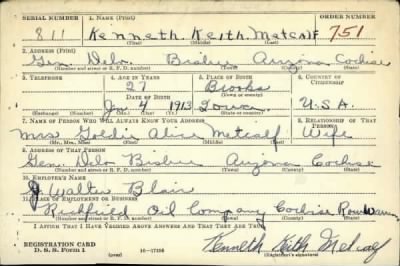 SERIAL NUMBER 1. NAME (Print) ORDER NUMBER
811 Kenneth Keith Metcalf 751
(First) (Middle) (Last)
2. ADDRESS (Print)
Gen. Delv. Bisbee Arizona Cochise
(Number and street or R. F. D. number) (Town) (County) (State)
3. TELEPHONE 4. AGE IN YEARS 5. PLACE OF BIRTH 6. COUNTRY OF CITIZENSHIP
27 Brooks
DATE OF BIRTH (Town or county)
Jan 4 1913 Iowa U.S.A.
(Exchange) (Number) (Mo.) (Day) (Yr.) (State or country)
7. NAME OF PERSON WHO WILL ALWAYS KNOW YOUR ADDRESS 8. RELATIONSHIP OF THAT PERSON
Mrs Goldie Alice Metcalf Wife
(Mr., Mrs., Miss) (First) (Middle) (Last)
9. ADDRESS OF THAT PERSON
Gen Delv Bisbee Arizona Cochise
(Number and street or R. F. D. number) (Town) (County) (State)
10. EMPLOYER'S NAME
J Walter Blair
11. PLACE OF EMPLOYMENT OR BUSINESS
Richfield Oil Company Cochise
(Number and street or R. F. D. number) (Town) (County) (State)
I AFFIRM THAT I HAVE VERIFIED ABOVE ANSWERS AND THAT THEY ARE TRUE.
REGISTRATION CARD
D. S. S. Form 1 (over) 16—17105 Kenneth Keith Metcalf
(Registrant's signature)